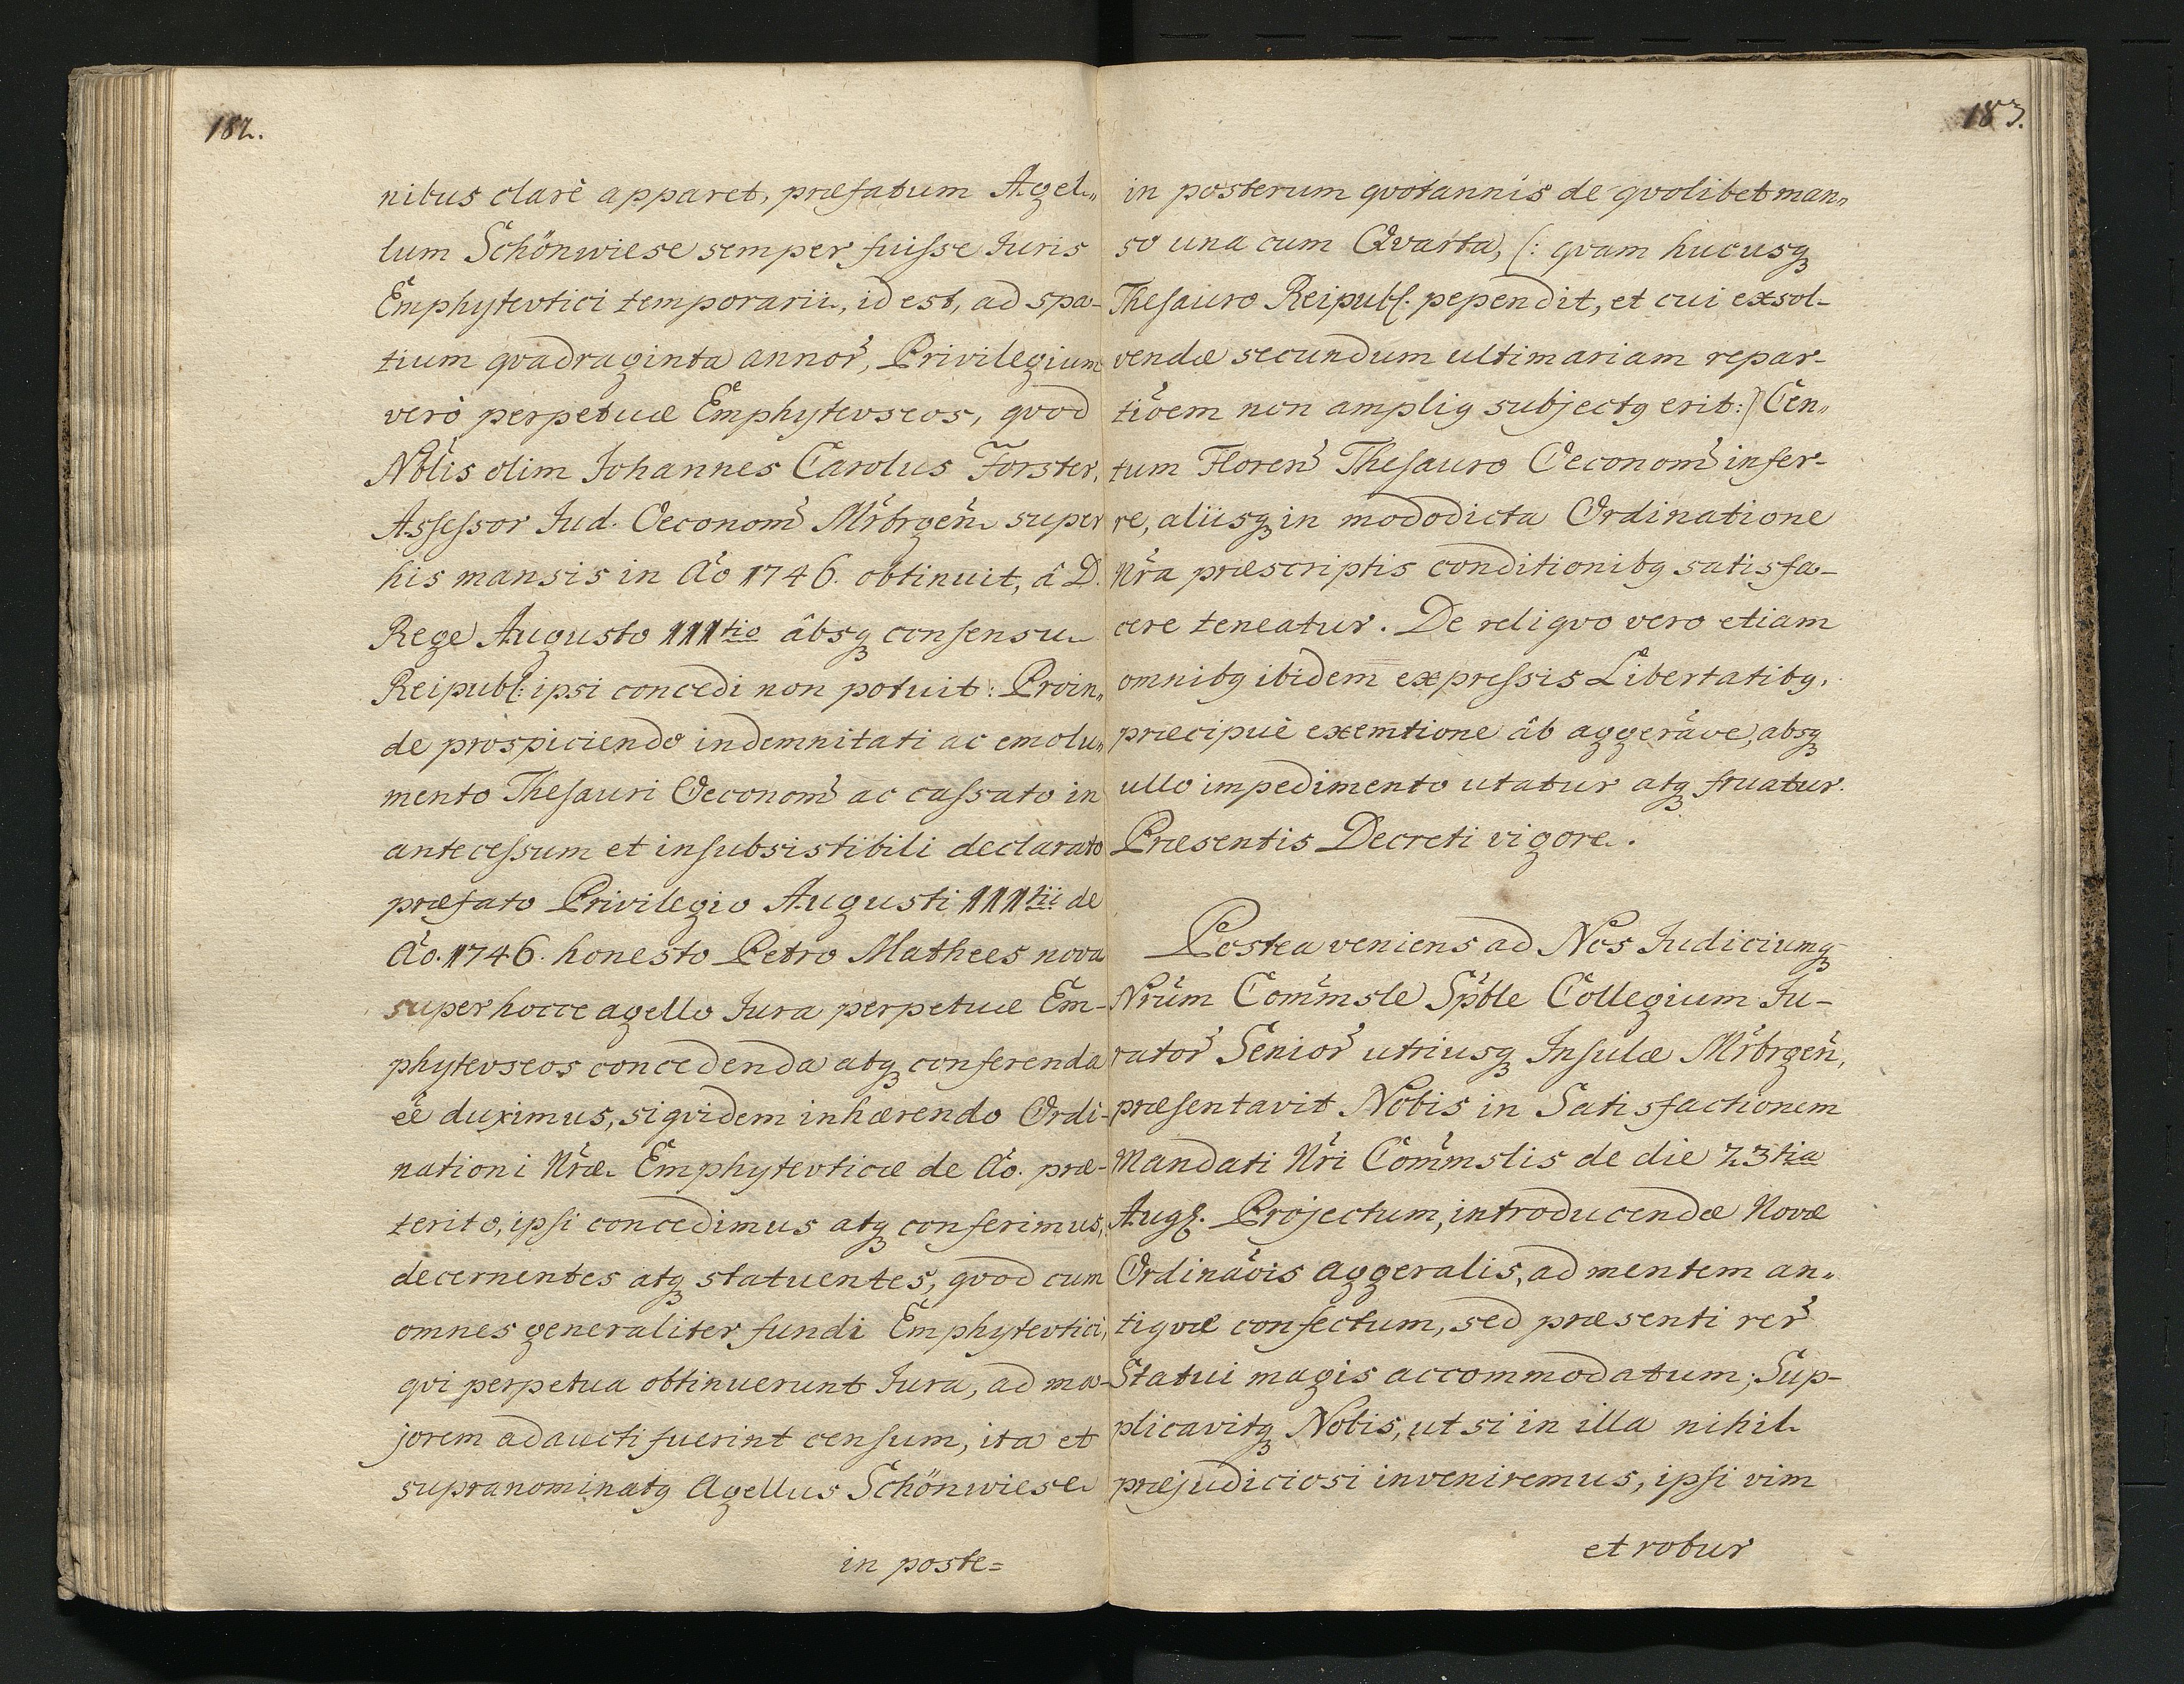 182.
nibus clarè apparet, præfatum Agel„
lum Schönwiese semper fuisse Juris
Emphytevtici temporarii, id est, ad spa-
tium qvadraginta annor̃, Privilegium
verò perpetuæ Emphytevseos, qvod
Nob̃lis olim Johannes Carolus Forster,
Assessor Jud. Oeconom̃ Mr̃brgeñ super
his mansis in Aõ 1746. obtinuit, â D.
Rege Augusto IIItio âbsq₃ consensu
Reipubl: ipsi concedi non potuit: Proin„
de prospiciendo indemnitati ac emolu„
mento Thesauri Oeconom̃ ac cassato in
antecessum et insubsistibili declarato
præfato Privilegio Augusti IIItii de
Aõ. 1746. honesto Petro Mathees nova
super hocce agello Jura perpetuæ Em-
phytevseos concedenda atq₃ conferenda
eẽ duximus, siqvidem inhærendo Ordi-
nationi Nr̃æ Emphytevticæ de Aõ. præ-
terito, ipsi concedimus atq₃ conferimus,
decernentes atq₃ statuentes, qvod cum
omnes generaliter fundi Emphytevtici,
qvi perpetua obtinuerunt Jura, ad ma-
jorem adaucti fuerint censum, ita et
supranominatꝰ Agellus Schönwiese
in poste=
183.
in posterum qvotannis de qvolibet man„
so una cum Qvarta, (: qvam hucusq₃
Thesauro Reipubl. pependit, et cui exsol-
vendæ secundum ultimariam repar-
tiõem non ampliꝰ subjectꝰ erit:) Cen„
tum Floren̄ Thesauro Oeconom̃ infer-
re, aliisq₃ in mododicta Ordinatione
Nr̃a præscriptis conditionibꝰ satisfa-
cere teneatur. De reliqvo vero etiam
omnibꝰ ibidem expressis Libertatibꝰ,
præcipuè exemtione âb aggerãoe, absq₃
ullo impedimento utatur atq₃ fruatur.
Præsentis Decreti vigore.
Postea veniens ad Nos Judiciumq₃
Nr̃um Com̃msle Sp̃ble Collegium Ju-
rator̃ Senior̃ utriusq₃ Insulæ Mr̃brgeñ,
præsentavit Nobis in Satisfactionem
Mandati Nr̃i Com̃mslis de die 23tia
Augs. Projectum, introducendæ Novæ
Ordinãois Aggeralis, ad mentem an„
tiqvæ confectum, sed præsenti rer̃
Statui magis accommodatum; Sup-
plicavitq₃ Nobis, ut si in illa nihil
præjudiciosi inveniremus, ipsi vim
et robur